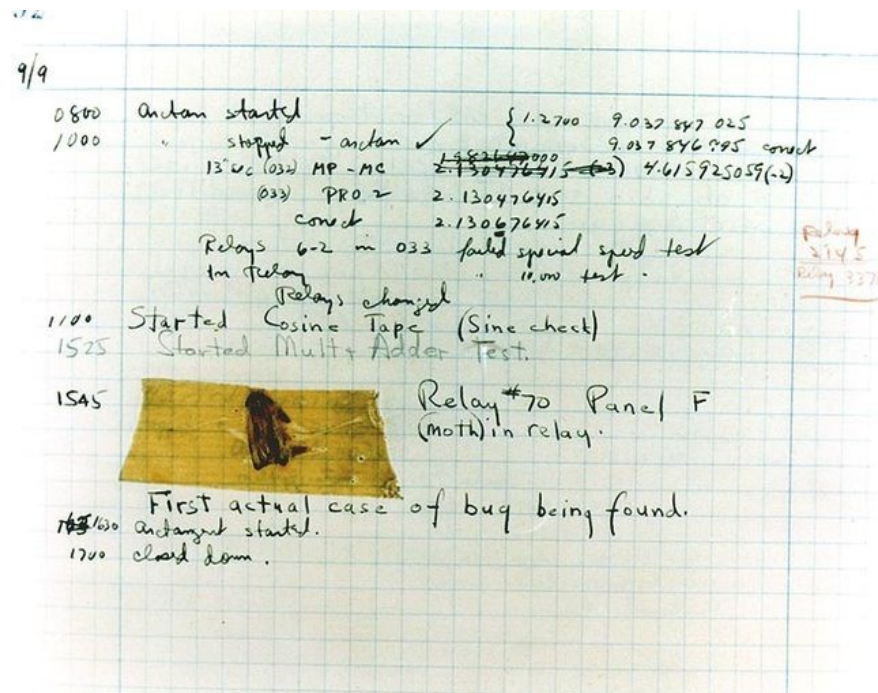 9/9
0800 arctan started { 1.2700 9.037 847 025
1000 " stopped - arctan ✓ 9.037 846 995 correct
13" uc (032) MP - MC 2.130476415 (-3) 4.615925059 (-2)
(033) PRO 2 2.130476415
correct 2.130676415
Relays 6-2 in 033 failed special speed test
in relay " 10,000 test .
Relay
2145
Relay 3370
Relays changed
1100 Started Cosine Tape (Sine check)
1525 Started Mult + Adder Test.
1545 Relay #70 Panel F
(moth) in relay.
First actual case of bug being found.
1630 arctangent started.
1700 closed down .